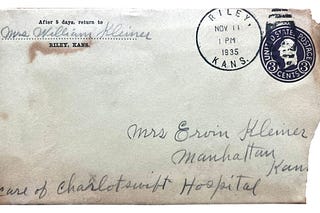 After 5 days, return to
Mrs William Kleiner
RILEY, KANS.
RILEY
NOV 11
1 PM
1935
KANS.
U.S. POSTAGE
3 CENTS 3
Mrs Ervin Kleiner
Manhattan
Kans
care of Charlotswift Hospital